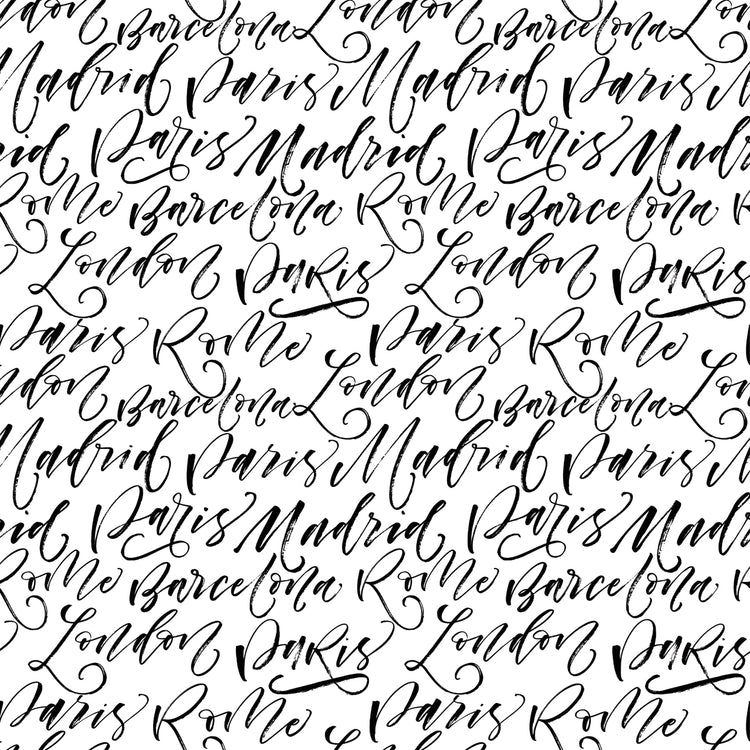 London Barcelona London Barcelona London
Madrid Paris Madrid Paris
Madrid Paris Madrid Paris Madrid
Rome Barcelona Rome Barcelona
London Paris London Paris
Paris Rome Paris Rome
London Barcelona London Barcelona London
Madrid Paris Madrid Paris
Madrid Paris Madrid Paris Madrid
Rome Barcelona Rome Barcelona
London Paris London Paris
Paris Rome Paris Rome